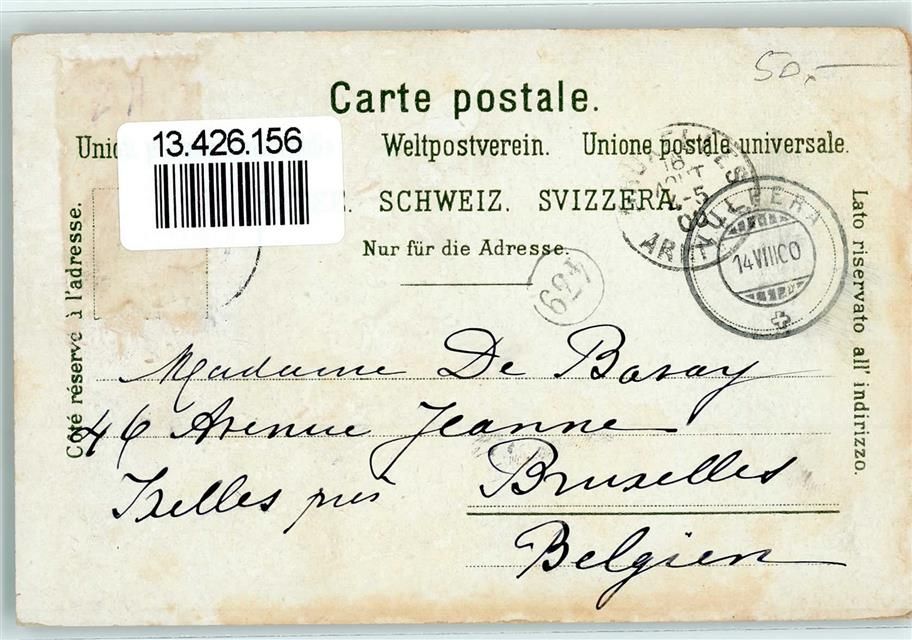 50.-
Carte postale.
13.426.156
Weltpostverein. Unione postale universale.
SCHWEIZ. SVIZZERA.
Nur für die Adresse.
Côté réservé à l'adresse.
Lato riservato all' indirizzo.
VULPERA
14 VIII 00
439
Madame De Bavay
46 Avenue Jeanne
Ixelles près Bruxelles
Belgien